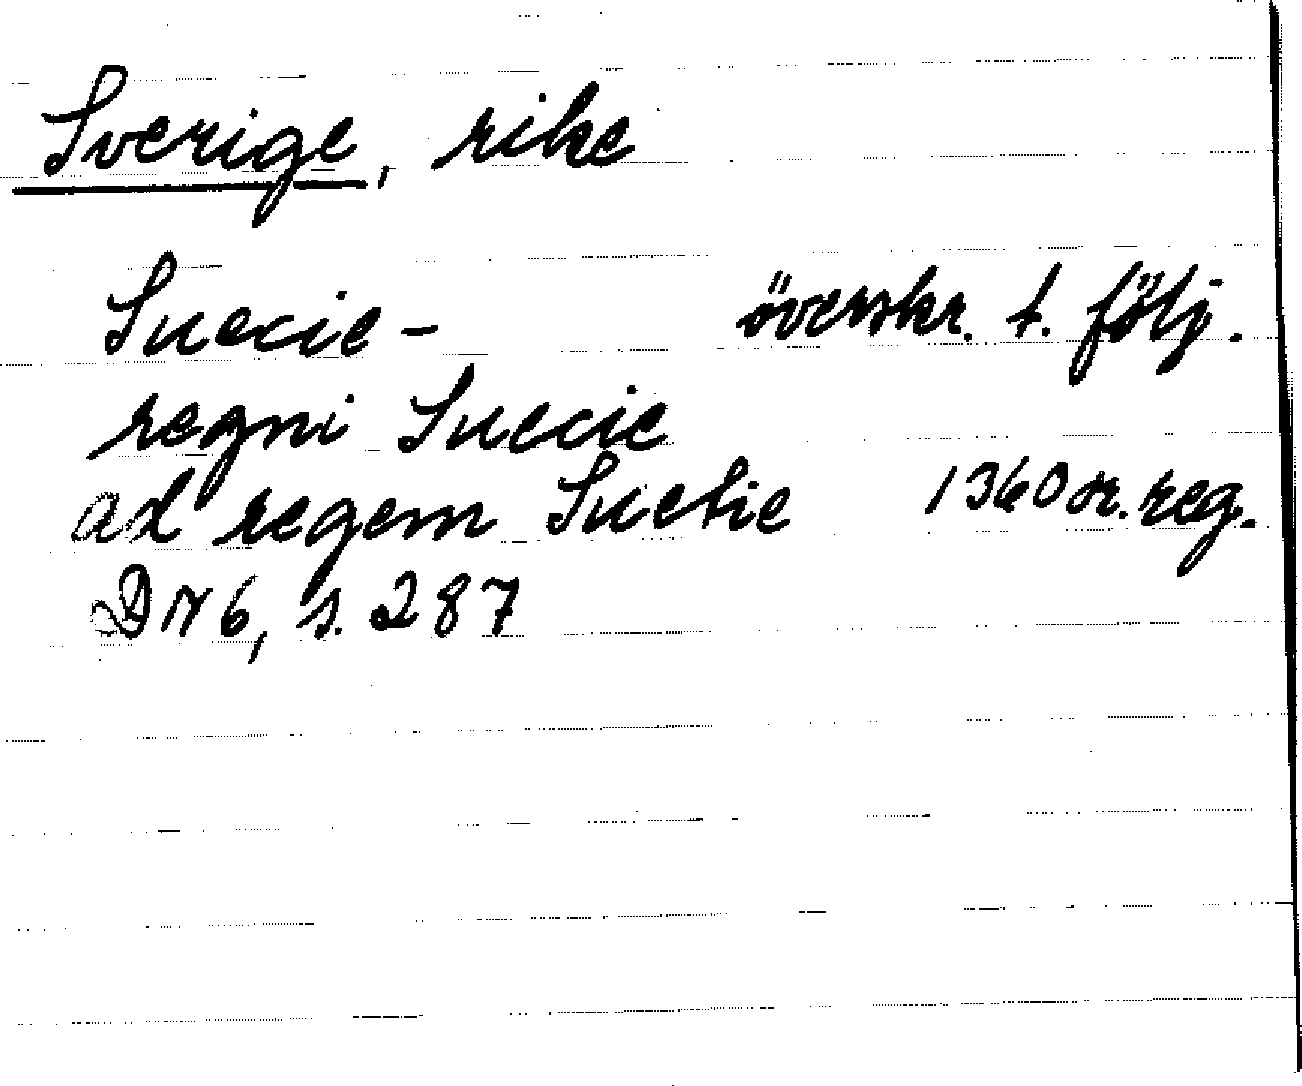 Sverige, rike
Suecie - överskr. t. följ.
regni Suecie
ad regem Suetie 1360 or. reg.
DN 6, s. 287